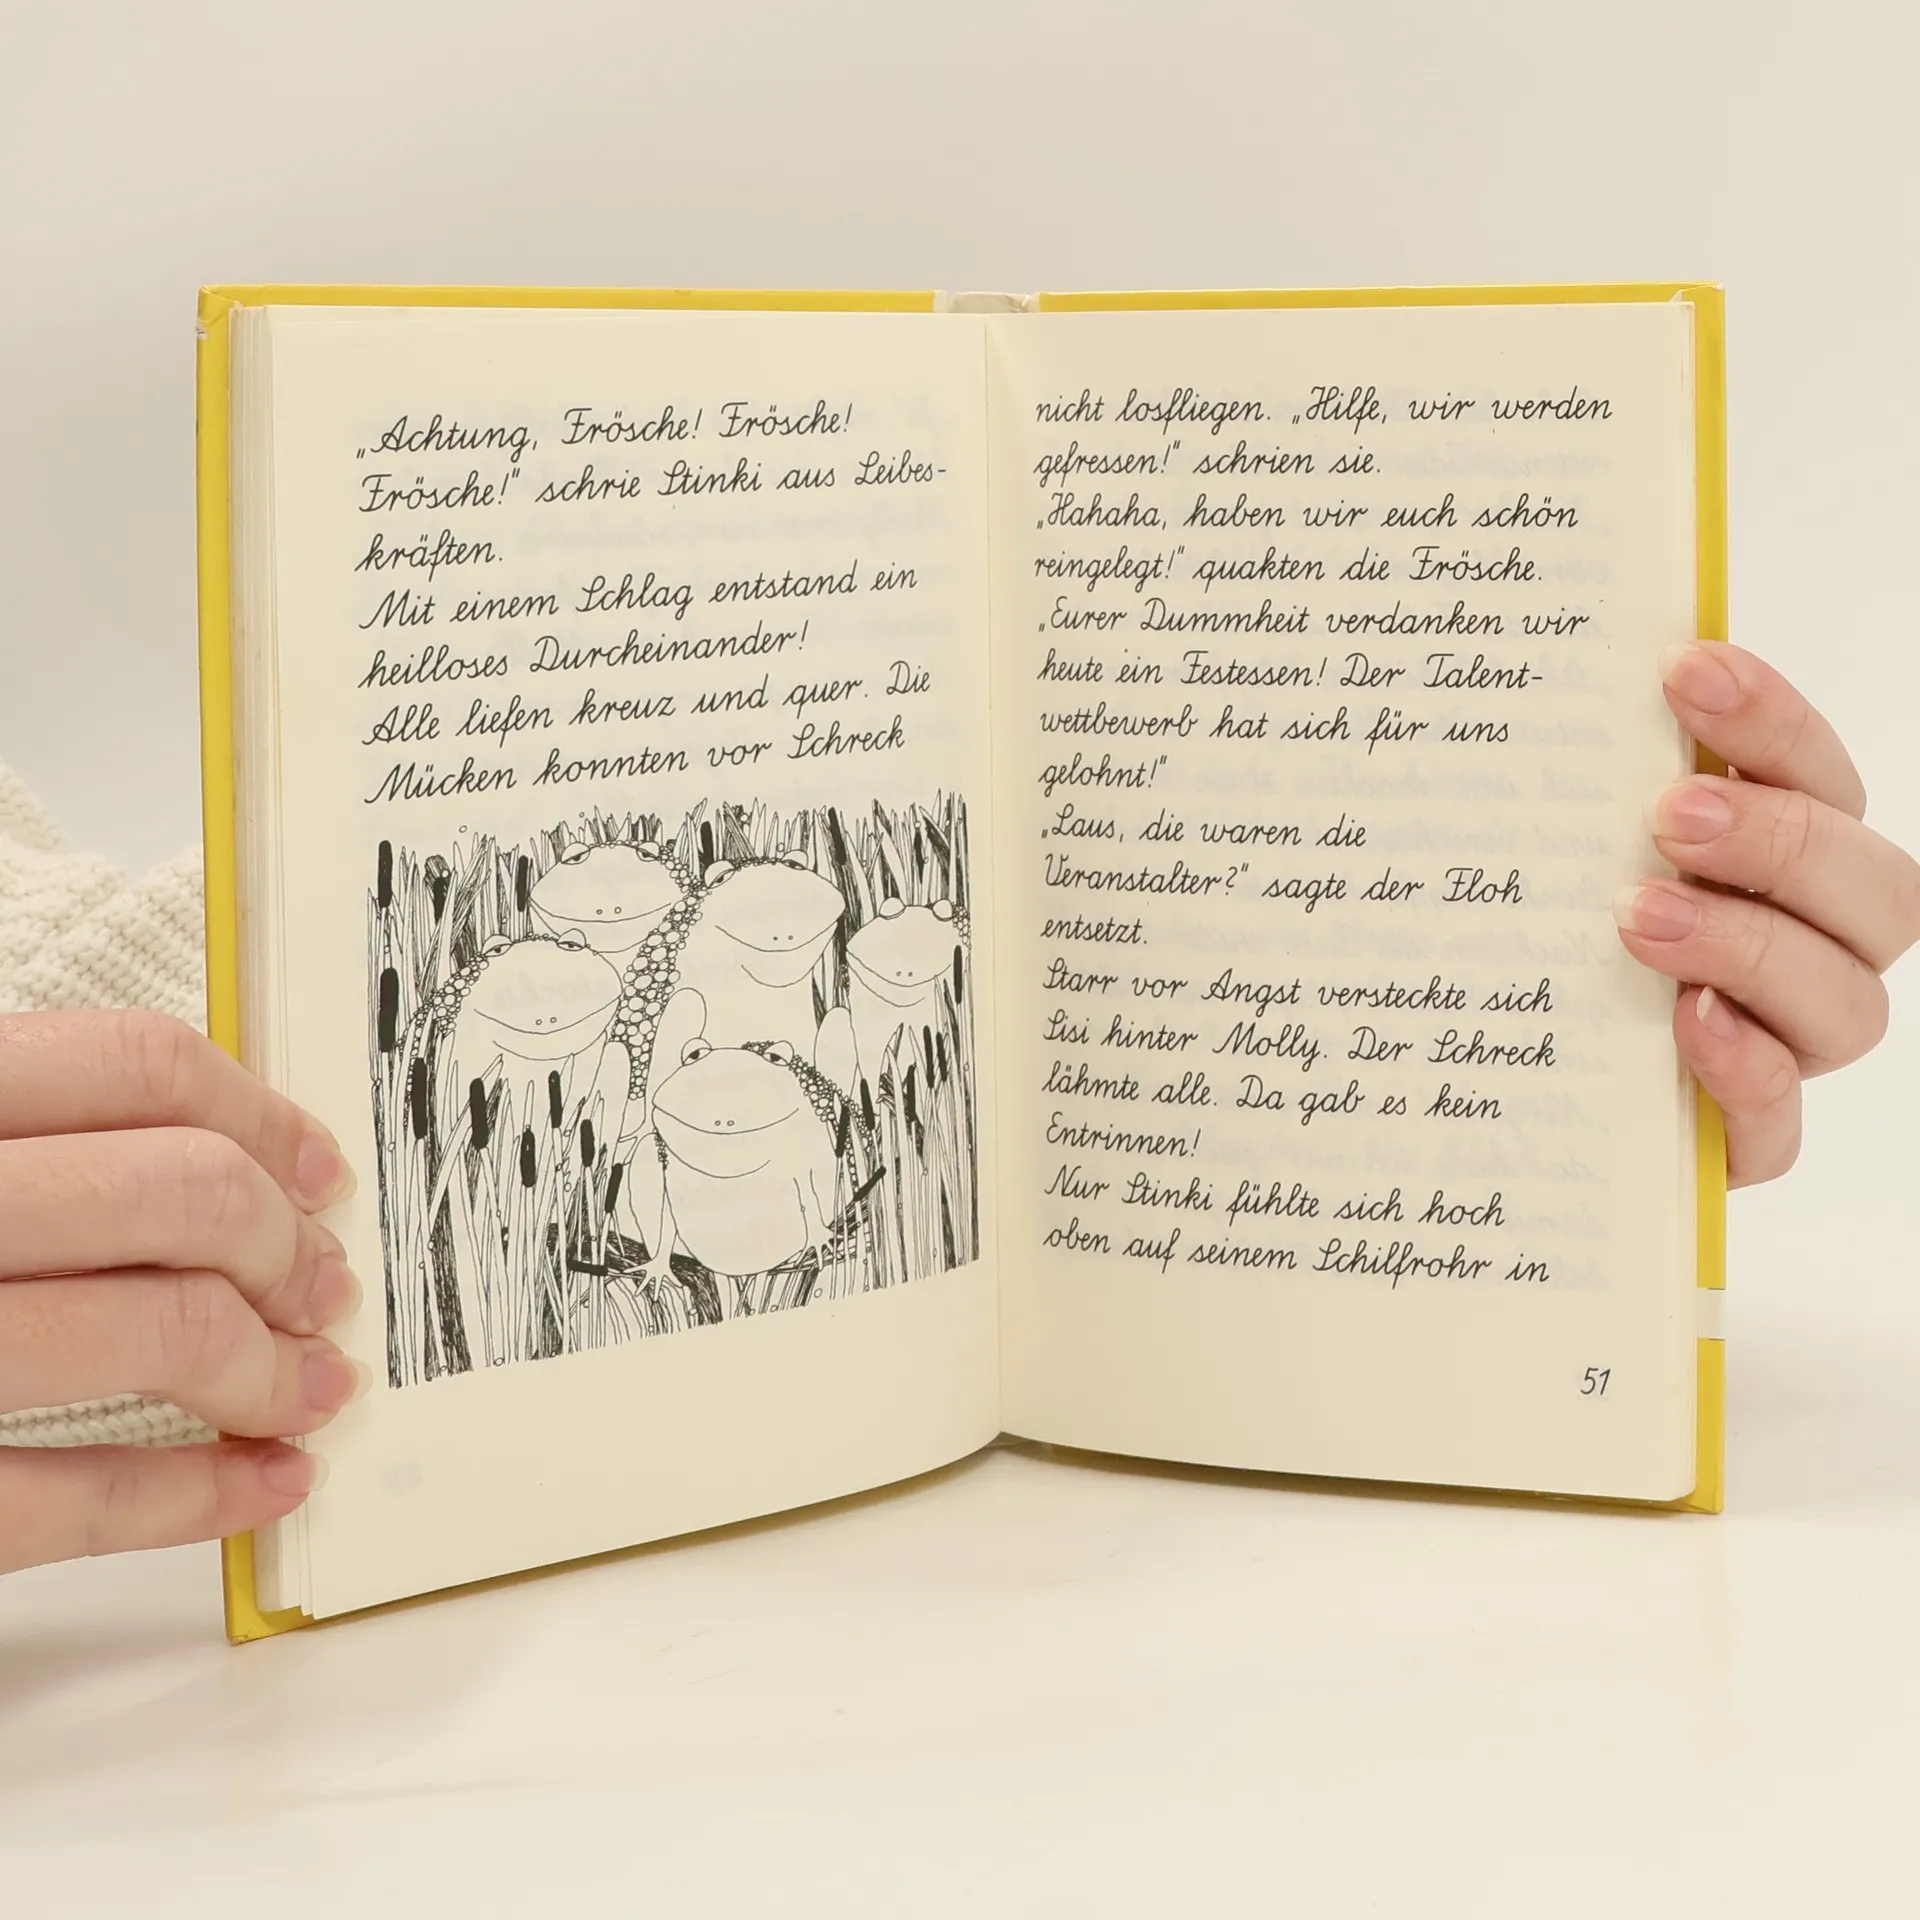 „Achtung, Frösche! Frösche!
Frösche!" schrie Stinki aus Leibes-
kräften.
Mit einem Schlag entstand ein
heilloses Durcheinander!
Alle liefen kreuz und quer. Die
Mücken konnten vor Schreck
nicht losfliegen. „Hilfe, wir werden
gefressen!" schrien sie.
„Hahaha, haben wir euch schön
reingelegt!" quakten die Frösche.
„Eurer Dummheit verdanken wir
heute ein Festessen! Der Talent-
wettbewerb hat sich für uns
gelohnt!"
„Laus, die waren die
Veranstalter?" sagte der Floh
entsetzt.
Starr vor Angst versteckte sich
Sisi hinter Molly. Der Schreck
lähmte alle. Da gab es kein
Entrinnen!
Nur Stinki fühlte sich hoch
oben auf seinem Schilfrohr in
51